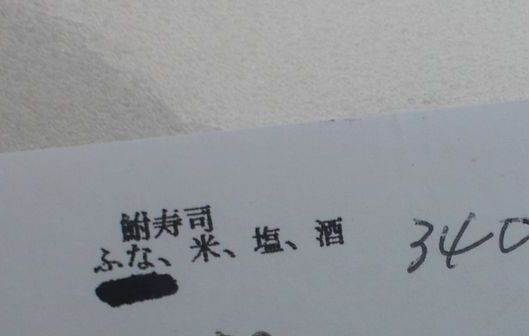 鮒寿司
ふな、米、塩、酒
340